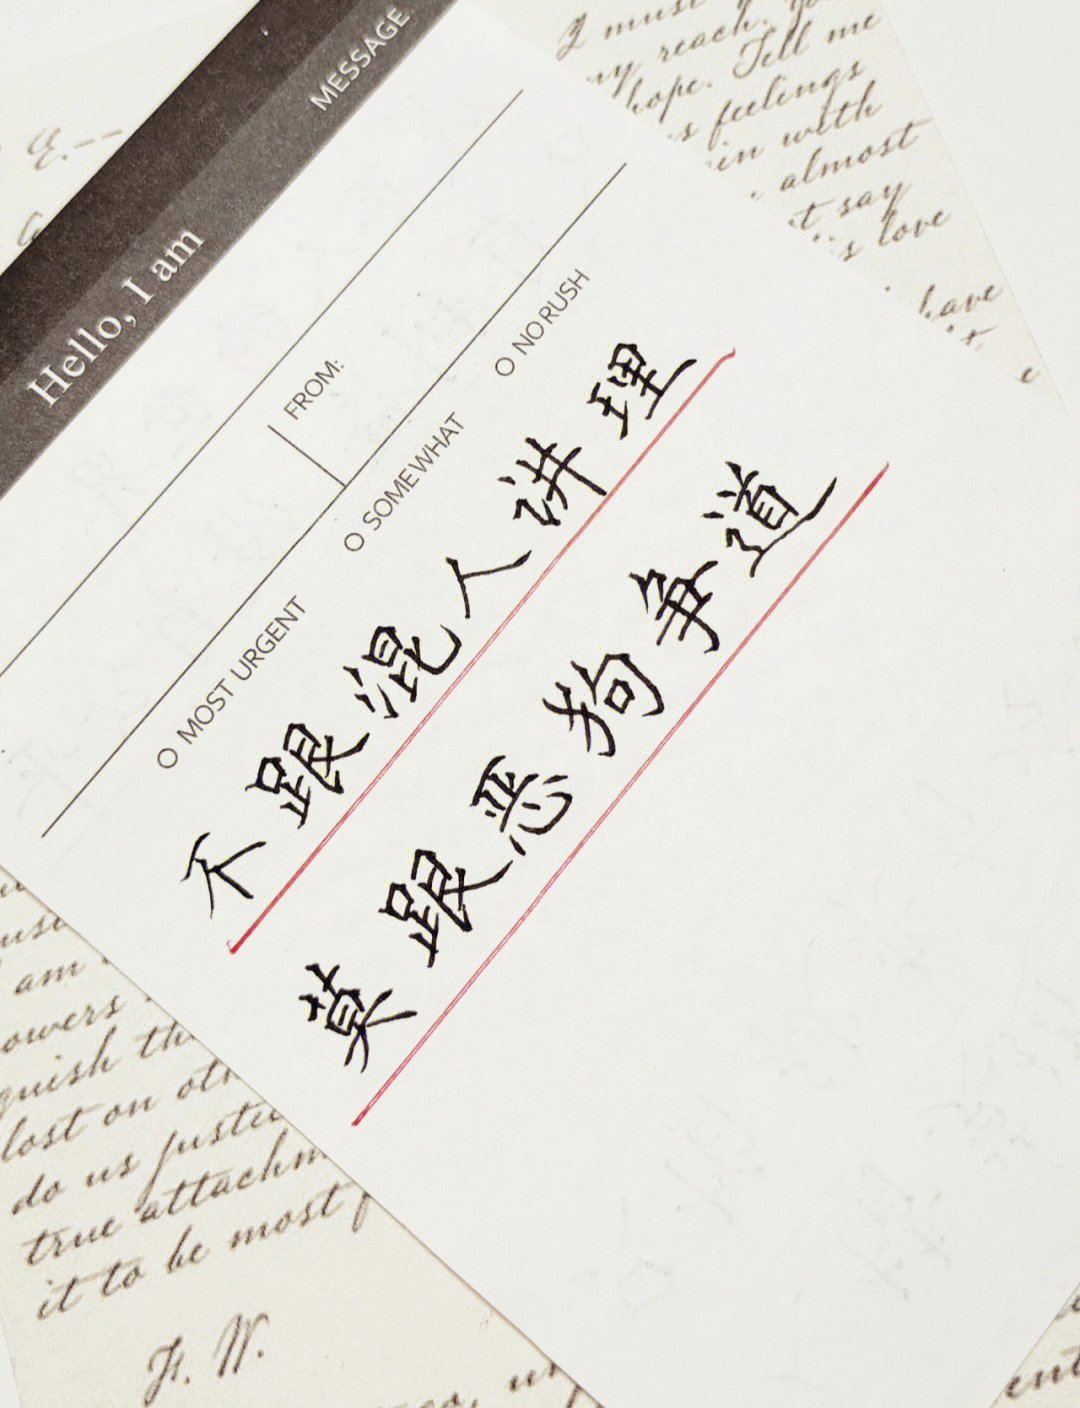 MESSAGE
Hello, I am
FROM:
O MOST URGENT O SOMEWHAT O NO RUSH
不跟混人讲理
莫跟恶狗争道
I must
my reach.
hope. Tell me
s feelings
in with
almost
t say
s love
have
am
owers
guish the
lost on oth
do us justic
true attachm
it to be most f
F. W.